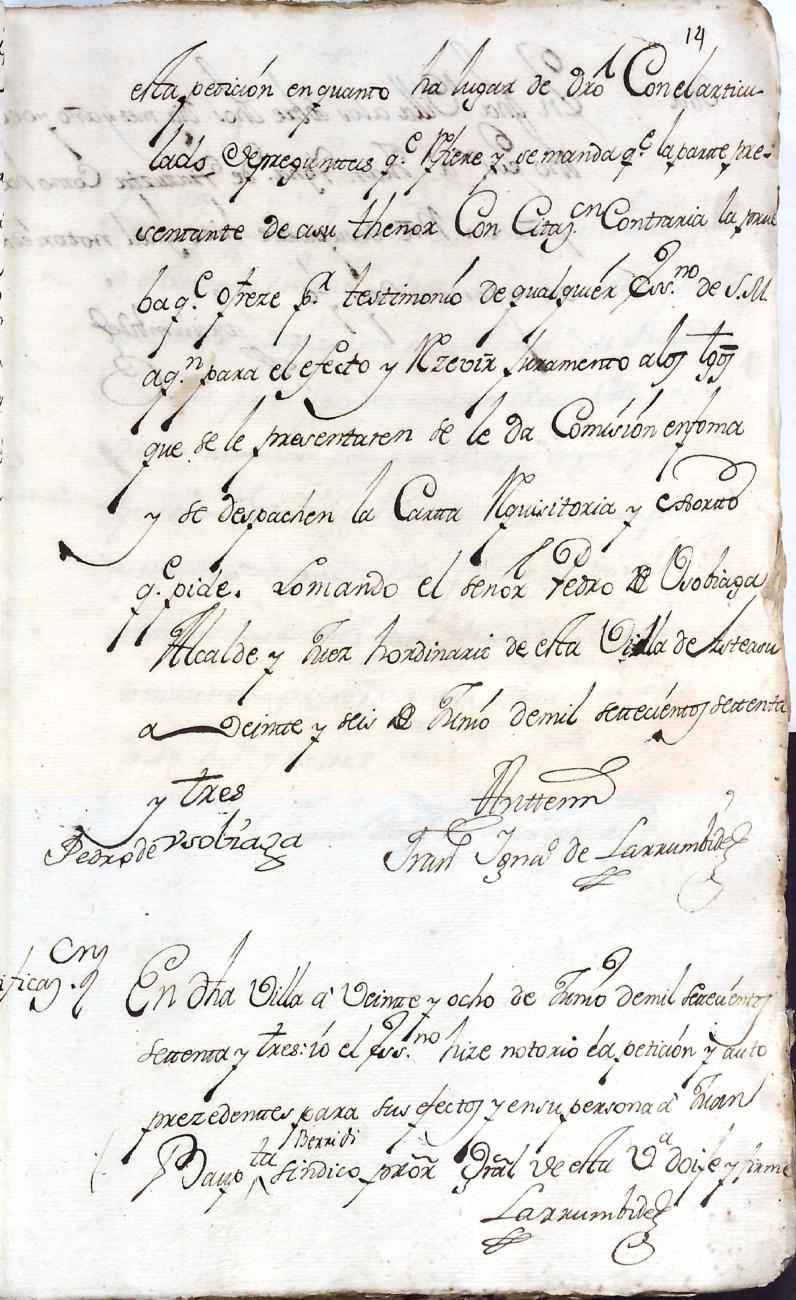 14
esta petición en quanto ha lugar de dro. Con el articu-
lado de preguntas q.e Rfiere y se manda q.e la parte pre-
sentante de a su thenor Con Citaz.on Contraria la prue
ba q.e ofreze p.r testimonio de qualquiér ess.no de S.M.
a q.n para el efecto y Rzevir Juramento a los tgos
que se le presentaren se le da Comisión en foma
y se despachen la Carta Rquisitoria y exorto
q.e pide. Lo mando el señor Pedro de Usobiaga
Alcalde y Juez hordinario de esta Villa de Asteasu
a veinte y seis de Junio de mil settecientos settenta
y tres
Anttemi
Pedro de Vsobiaga
Fran.co Ign.o de Larrumbide
ificaz.on
En dha Villa a veinte y ocho de Junio de mil settecientos
settenta y tres: io el ess.no hize notorio la petición y auto
prezedenttes para sus efectos y en su persona a Juan
Baup.ta Berridi sindico pror Gral de esta V.a doi fe y firme
Larrumbide